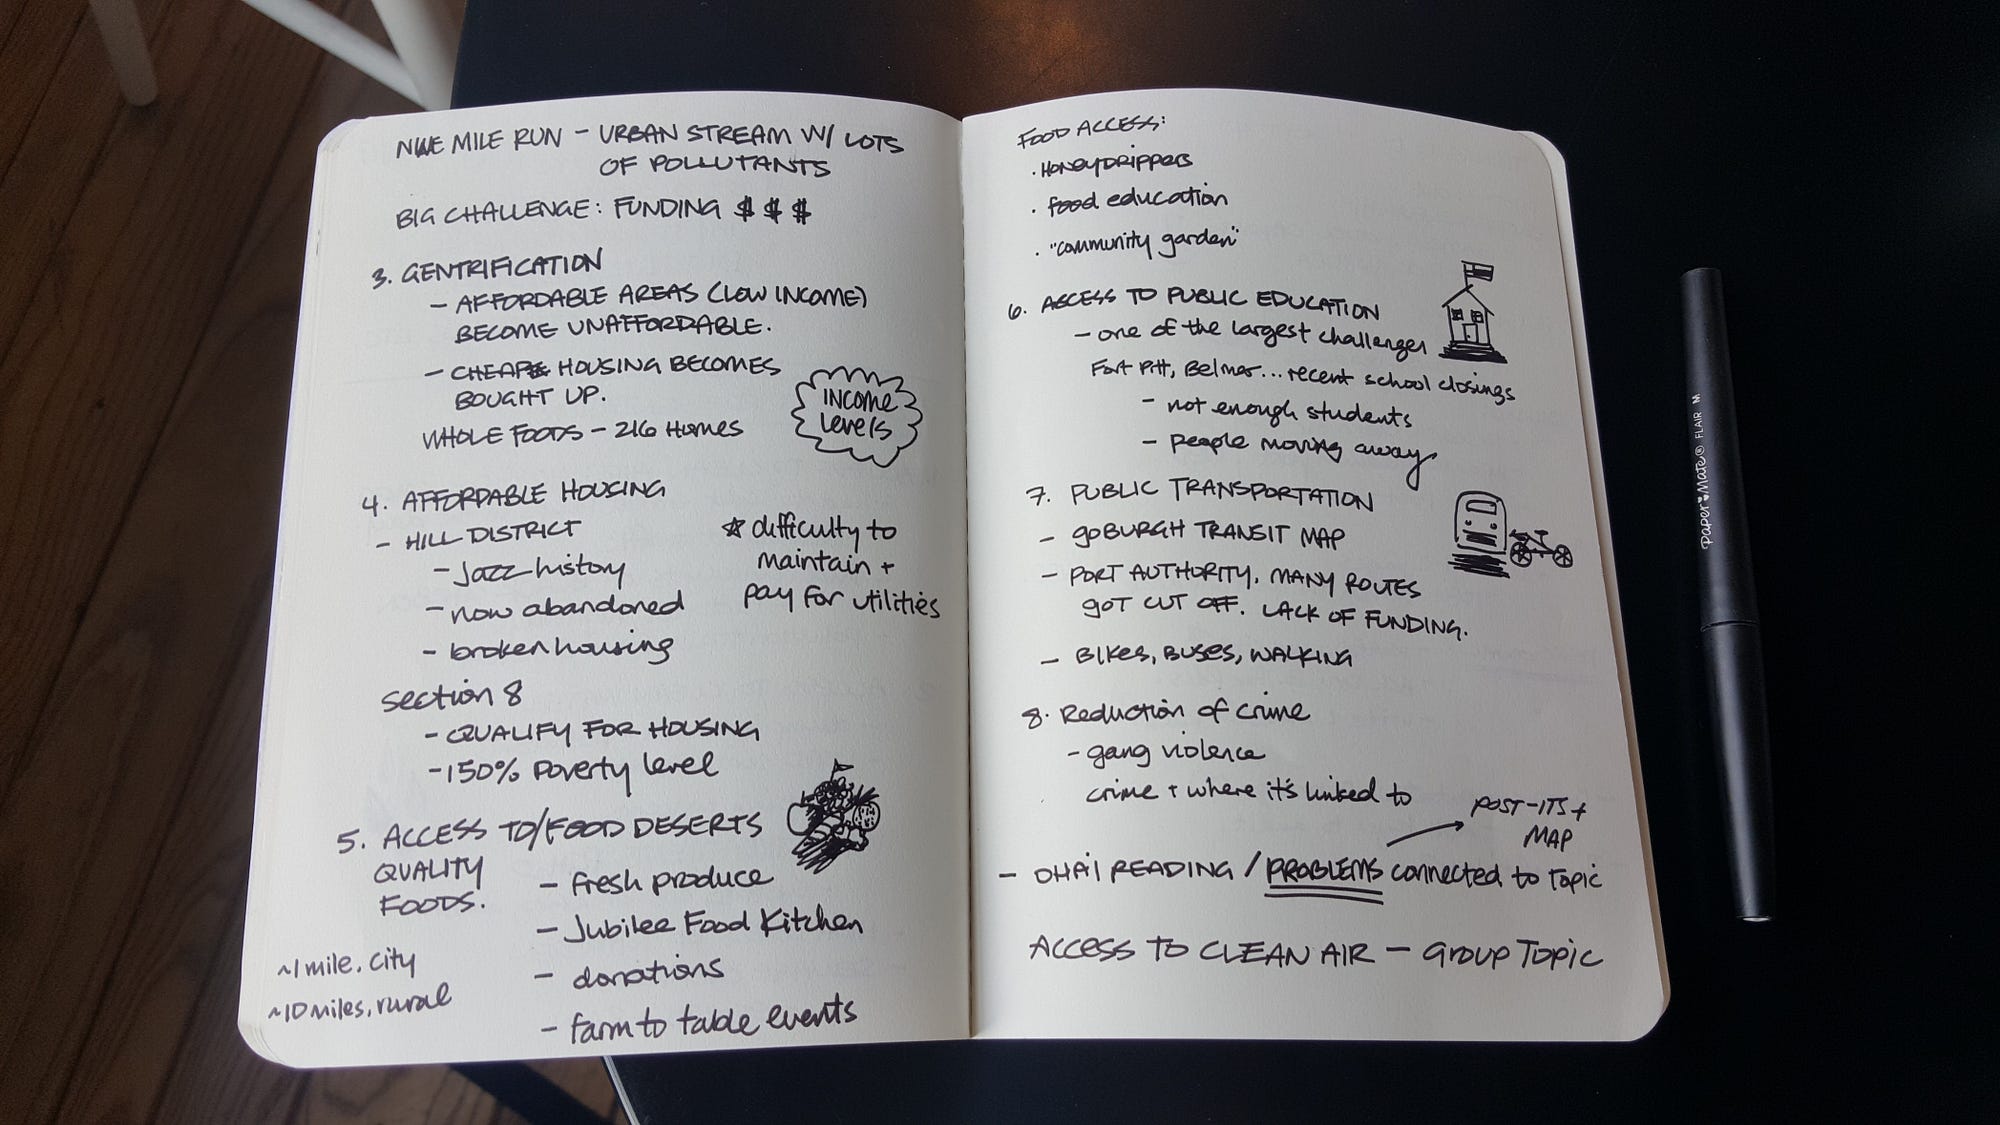 NINE MILE RUN - URBAN STREAM W/ LOTS
OF POLLUTANTS
BIG CHALLENGE: FUNDING $ $ $
3. GENTRIFICATION
- AFFORDABLE AREAS (LOW INCOME)
BECOME UNAFFORDABLE.
- CHEAP HOUSING BECOMES
BOUGHT UP.
WHOLE FOODS - 216 Homes
INCOME
Levels
4. AFFORDABLE HOUSING
- HILL DISTRICT
- Jazz history
- now abandoned
- broken housing
☆ difficulty to
maintain +
pay for utilities
section 8
- QUALIFY FOR HOUSING
- 150% Poverty level
5. ACCESS TO/FOOD DESERTS
QUALITY
FOODS.
- fresh produce
- Jubilee Food Kitchen
- donations
- farm to table events
~1 mile, city
~10 miles, rural
FOOD ACCESS:
. HONEYDRIPPERS
. food education
. "community garden"
6. ACCESS TO PUBLIC EDUCATION
- one of the largest challenges
Fort Pitt, Belmar... recent school closings
- not enough students
- people moving away
7. PUBLIC TRANSPORTATION
- goBURGH TRANSIT MAP
- PORT AUTHORITY, MANY ROUTES
GOT CUT OFF. LACK OF FUNDING.
- BIKES, BUSES, WALKING
8. Reduction of crime
- gang violence
crime + where it's linked to
POST-ITS +
MAP
- READING / PROBLEMS connected to Topic
ACCESS TO CLEAN AIR - Group Topic
Paper Mate® FLAIR M